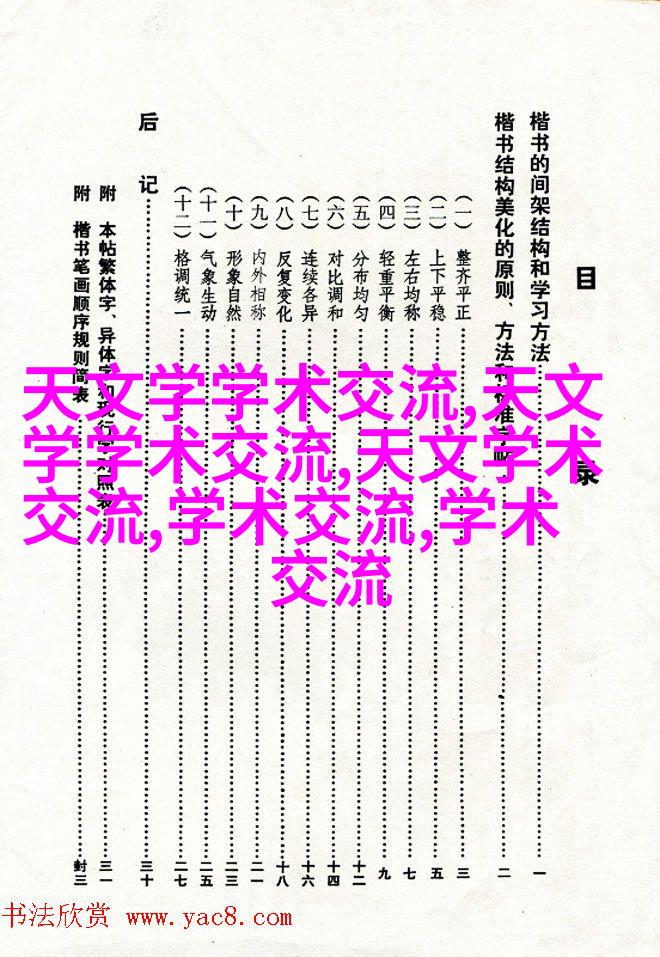 目录
楷书的间架结构和学习方法……一
楷书结构美化的原则、方法和……二
(一)整齐平正……三
(二)上下平稳……五
(三)左右均称……七
(四)轻重平衡……九
(五)分布均匀……十二
(六)对比调和……十四
(七)连续各异……十六
(八)反复变化……十八
(九)内外相称……二一
(十)形象自然……二三
(十一)气象生动……二五
(十二)格调统一……二七
后记……三十
附 本帖繁体字、异体字和现行字对照表……三一
附 楷书笔画顺序规则简表……封三
天文学学术交流,天文
学学术交流,天文学学术
交流,学术交流,学术
交流
书法欣赏 www.yac8.com